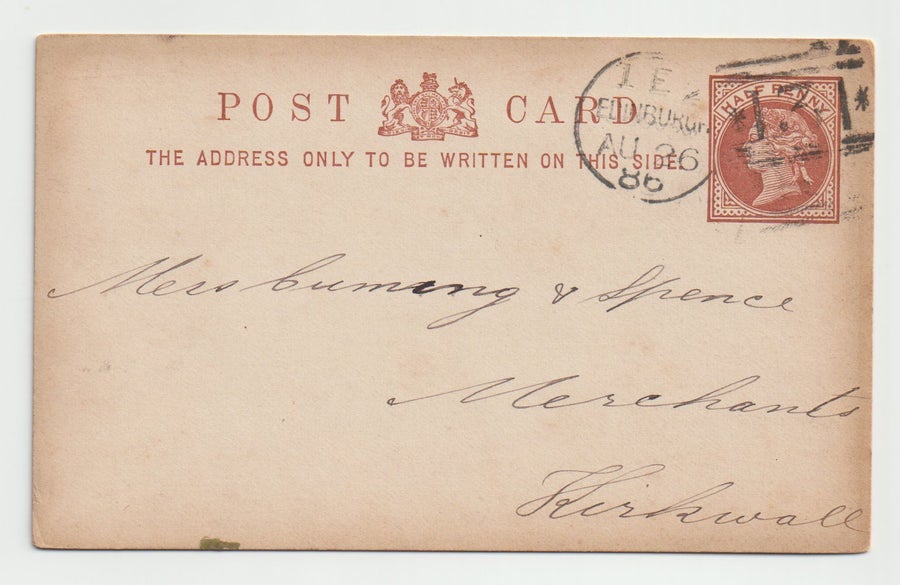 POST CARD
THE ADDRESS ONLY TO BE WRITTEN ON THIS SIDE.
HALF PENNY
1 E
EDINBURGH
AU 26
86
Mess Cuming & Spence
Merchants
Kirkwall